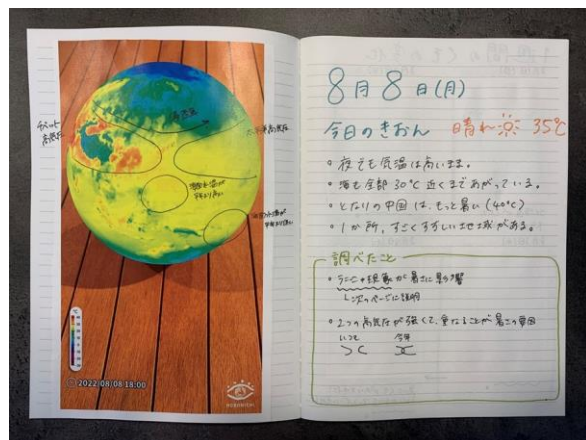 チベット
高気圧
太平洋高気圧
2022/08/08 18:00
8月8日(月)
今日のきおん 晴れ 35℃
・夜でも気温は高いまま。
・海も全部30℃近くまであがっている。
・となりの中国は、もっと暑い(40℃)
・1か所、すごくすずしい地域がある。
調べたこと
・ラニーニャ現象が暑さに影響
└次のページに説明
・2つの高気圧が強くて、重なることが暑さの要因
いつも 今年